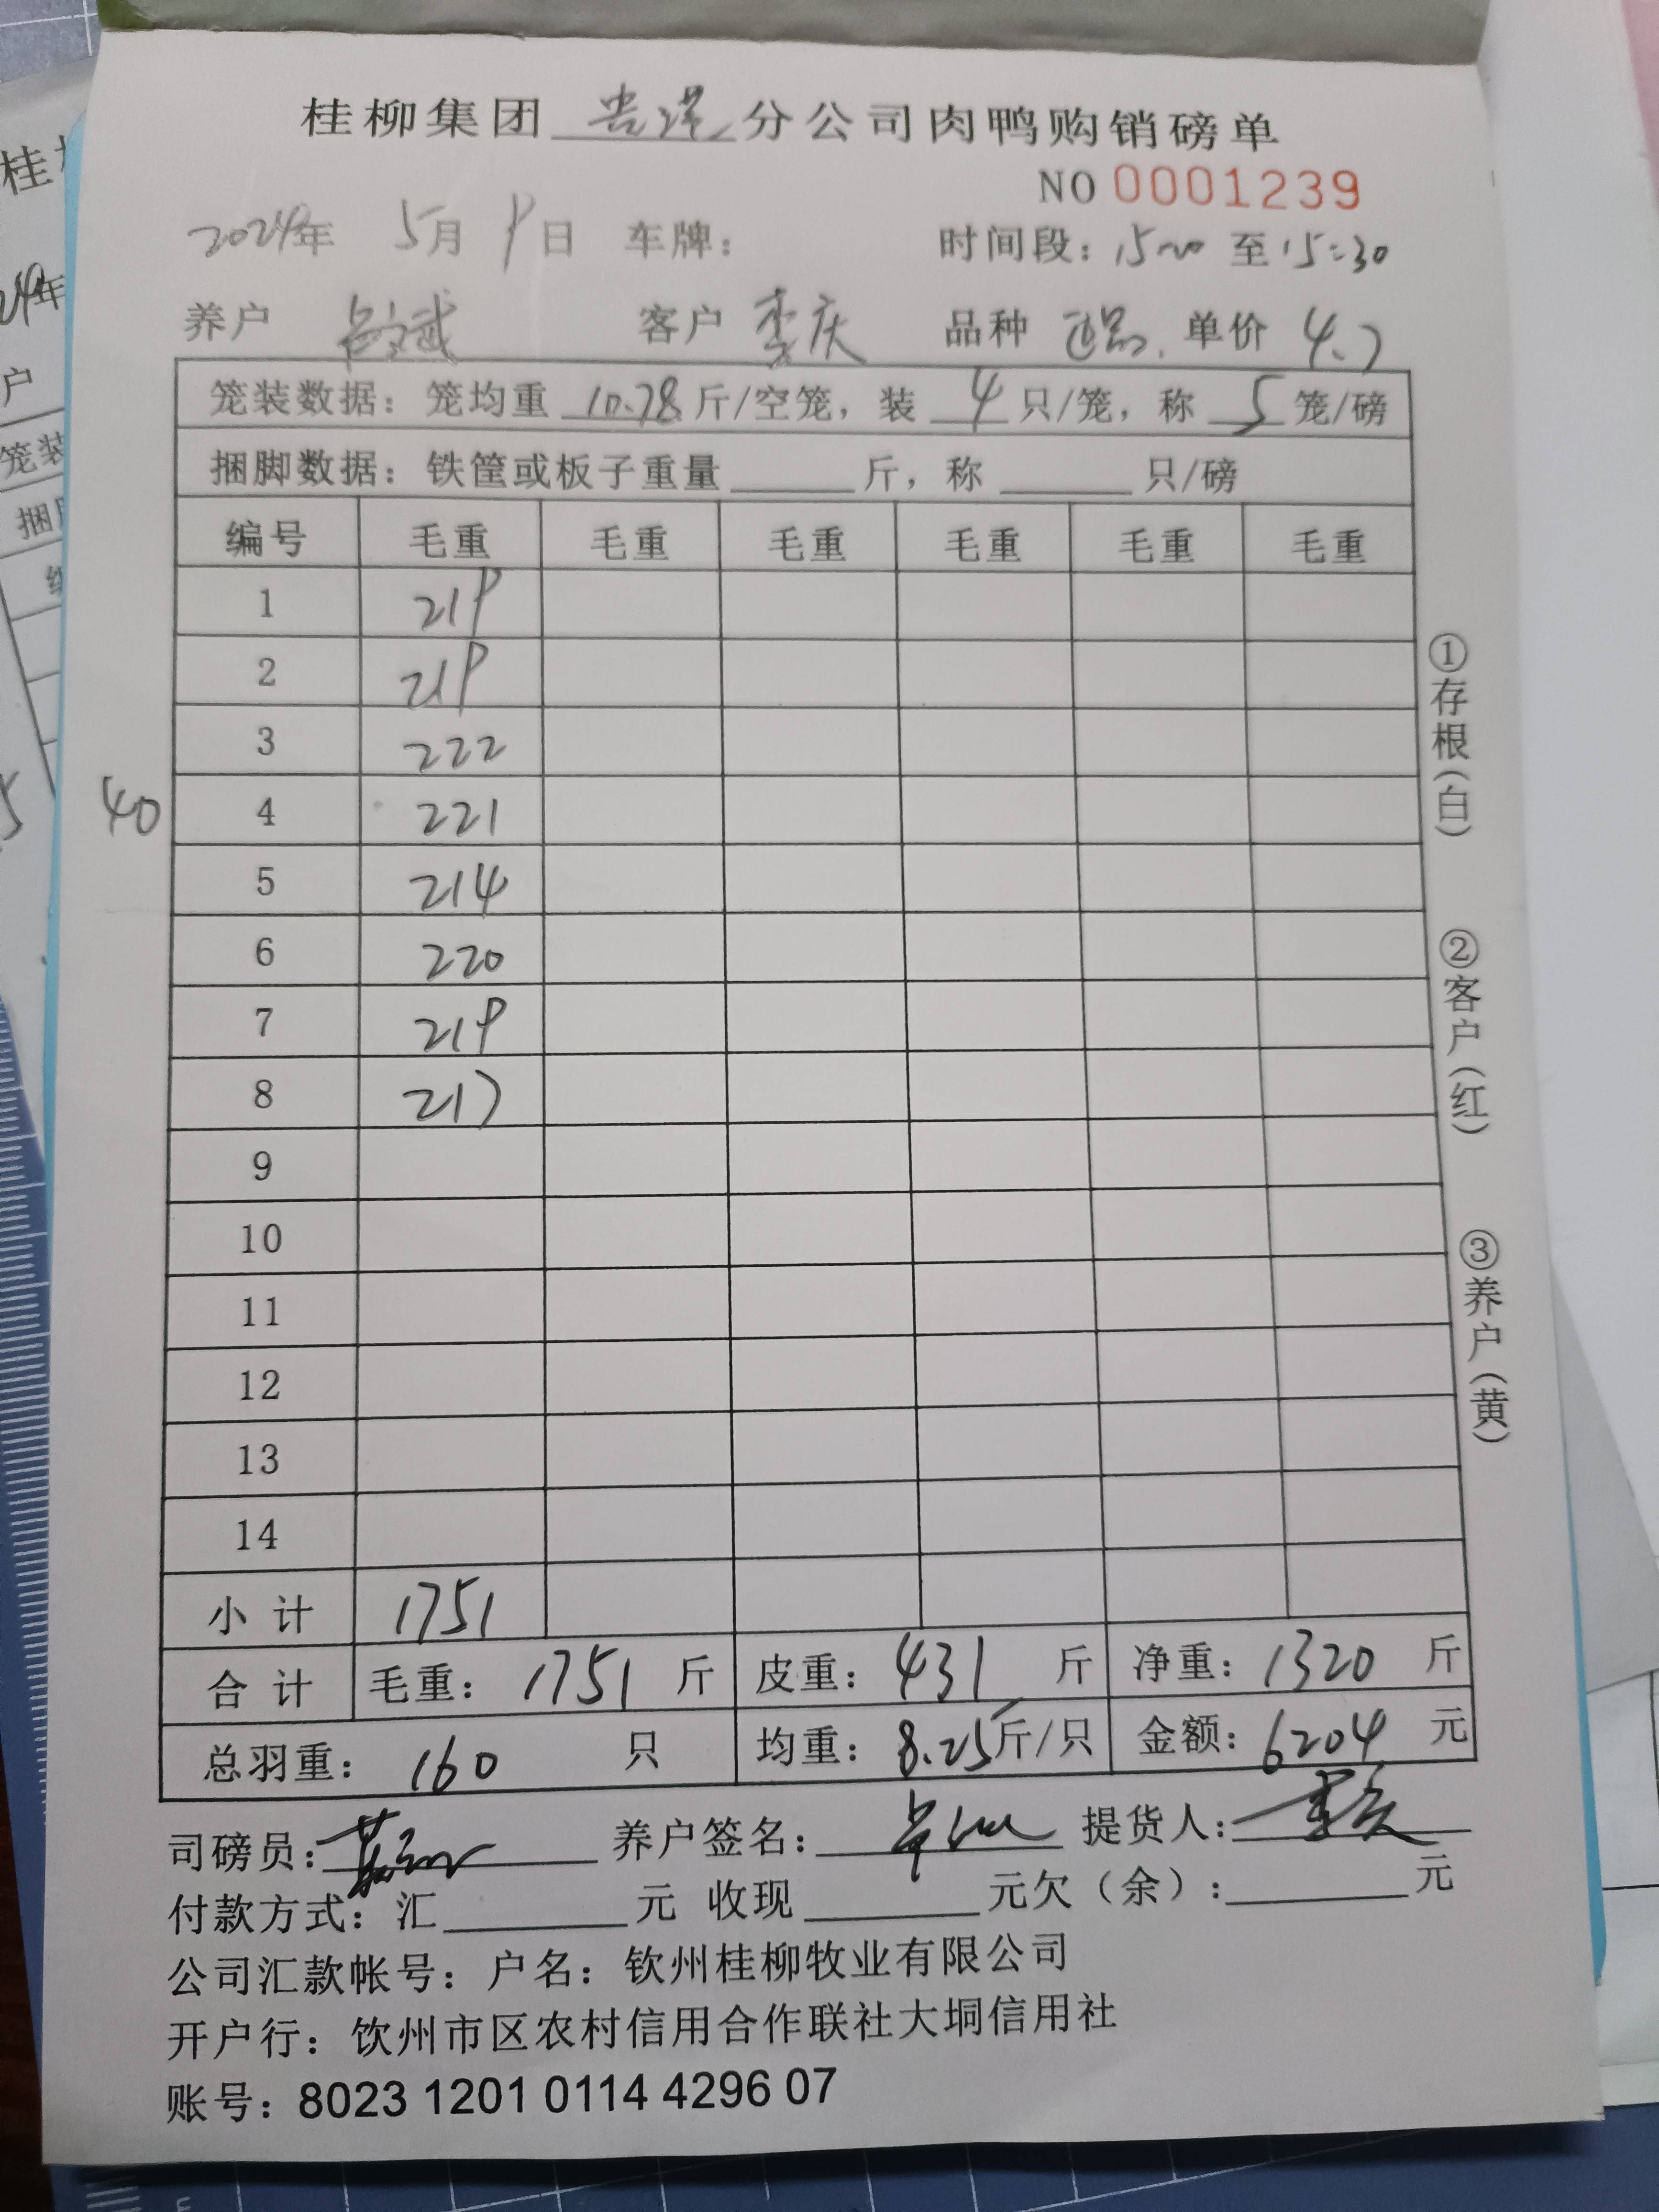 桂柳集团 贵港 分公司肉鸭购销磅单
NO 0001239
2024年 5月 9日 车牌： 时间段：15:00 至 15:30
养户 客户 李庆 品种 单价 4.7
笼装数据：笼均重 10.78 斤/空笼，装 4 只/笼，称 5 笼/磅
捆脚数据：铁筐或板子重量 斤，称 只/磅
编号 毛重 毛重 毛重 毛重 毛重 毛重
1 219
2 219
3 222
40
4 221
5 214
6 220
7 219
8 217
9
10
11
12
13
14
小计 1751
合计 毛重：1751 斤 皮重：431 斤 净重：1320 斤
总羽重：160 只 均重：8.25斤/只 金额：6204 元
司磅员： 养户签名： 提货人：李庆
付款方式：汇 元 收现 元欠（余）： 元
公司汇款帐号：户名：钦州桂柳牧业有限公司
开户行：饮州市区农村信用合作联社大垌信用社
账号：8023 1201 0114 4296 07
①存根（白）
②客户（红）
③养户（黄）